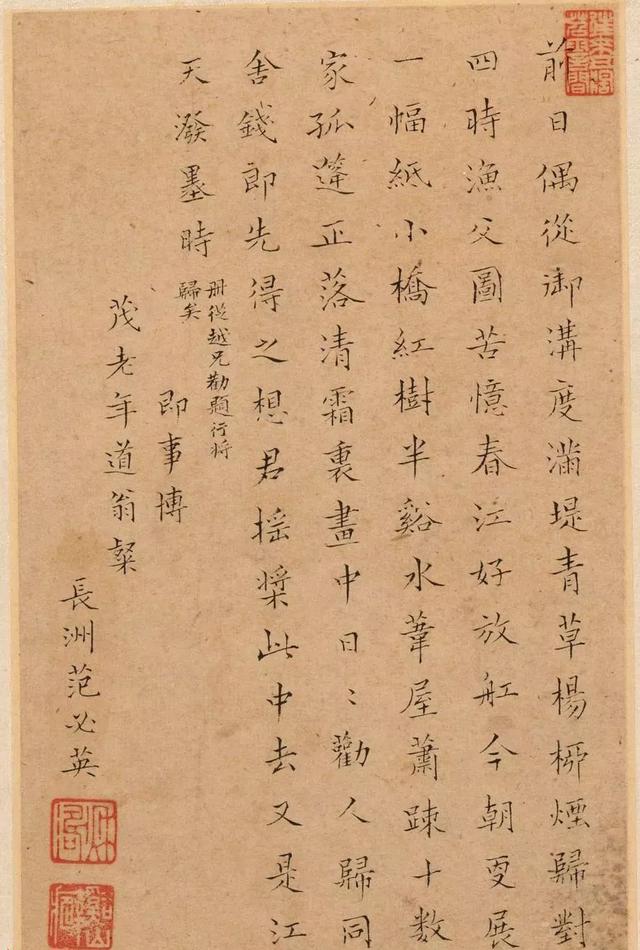 前日偶從御溝度滿堤青草楊柳煙歸對
四時漁父圖苦憶春江好放舡今朝更展
一幅紙小橋紅樹半谿水葦屋蕭踈十數
家孤篷正落清霜裏畫中日〻勸人歸同
舍錢郎先得之想君搖槳此中去又是江
天潑墨時
冊從越兄勸題行將
歸矣
即事博
茂老年道翁粲
長洲范必英